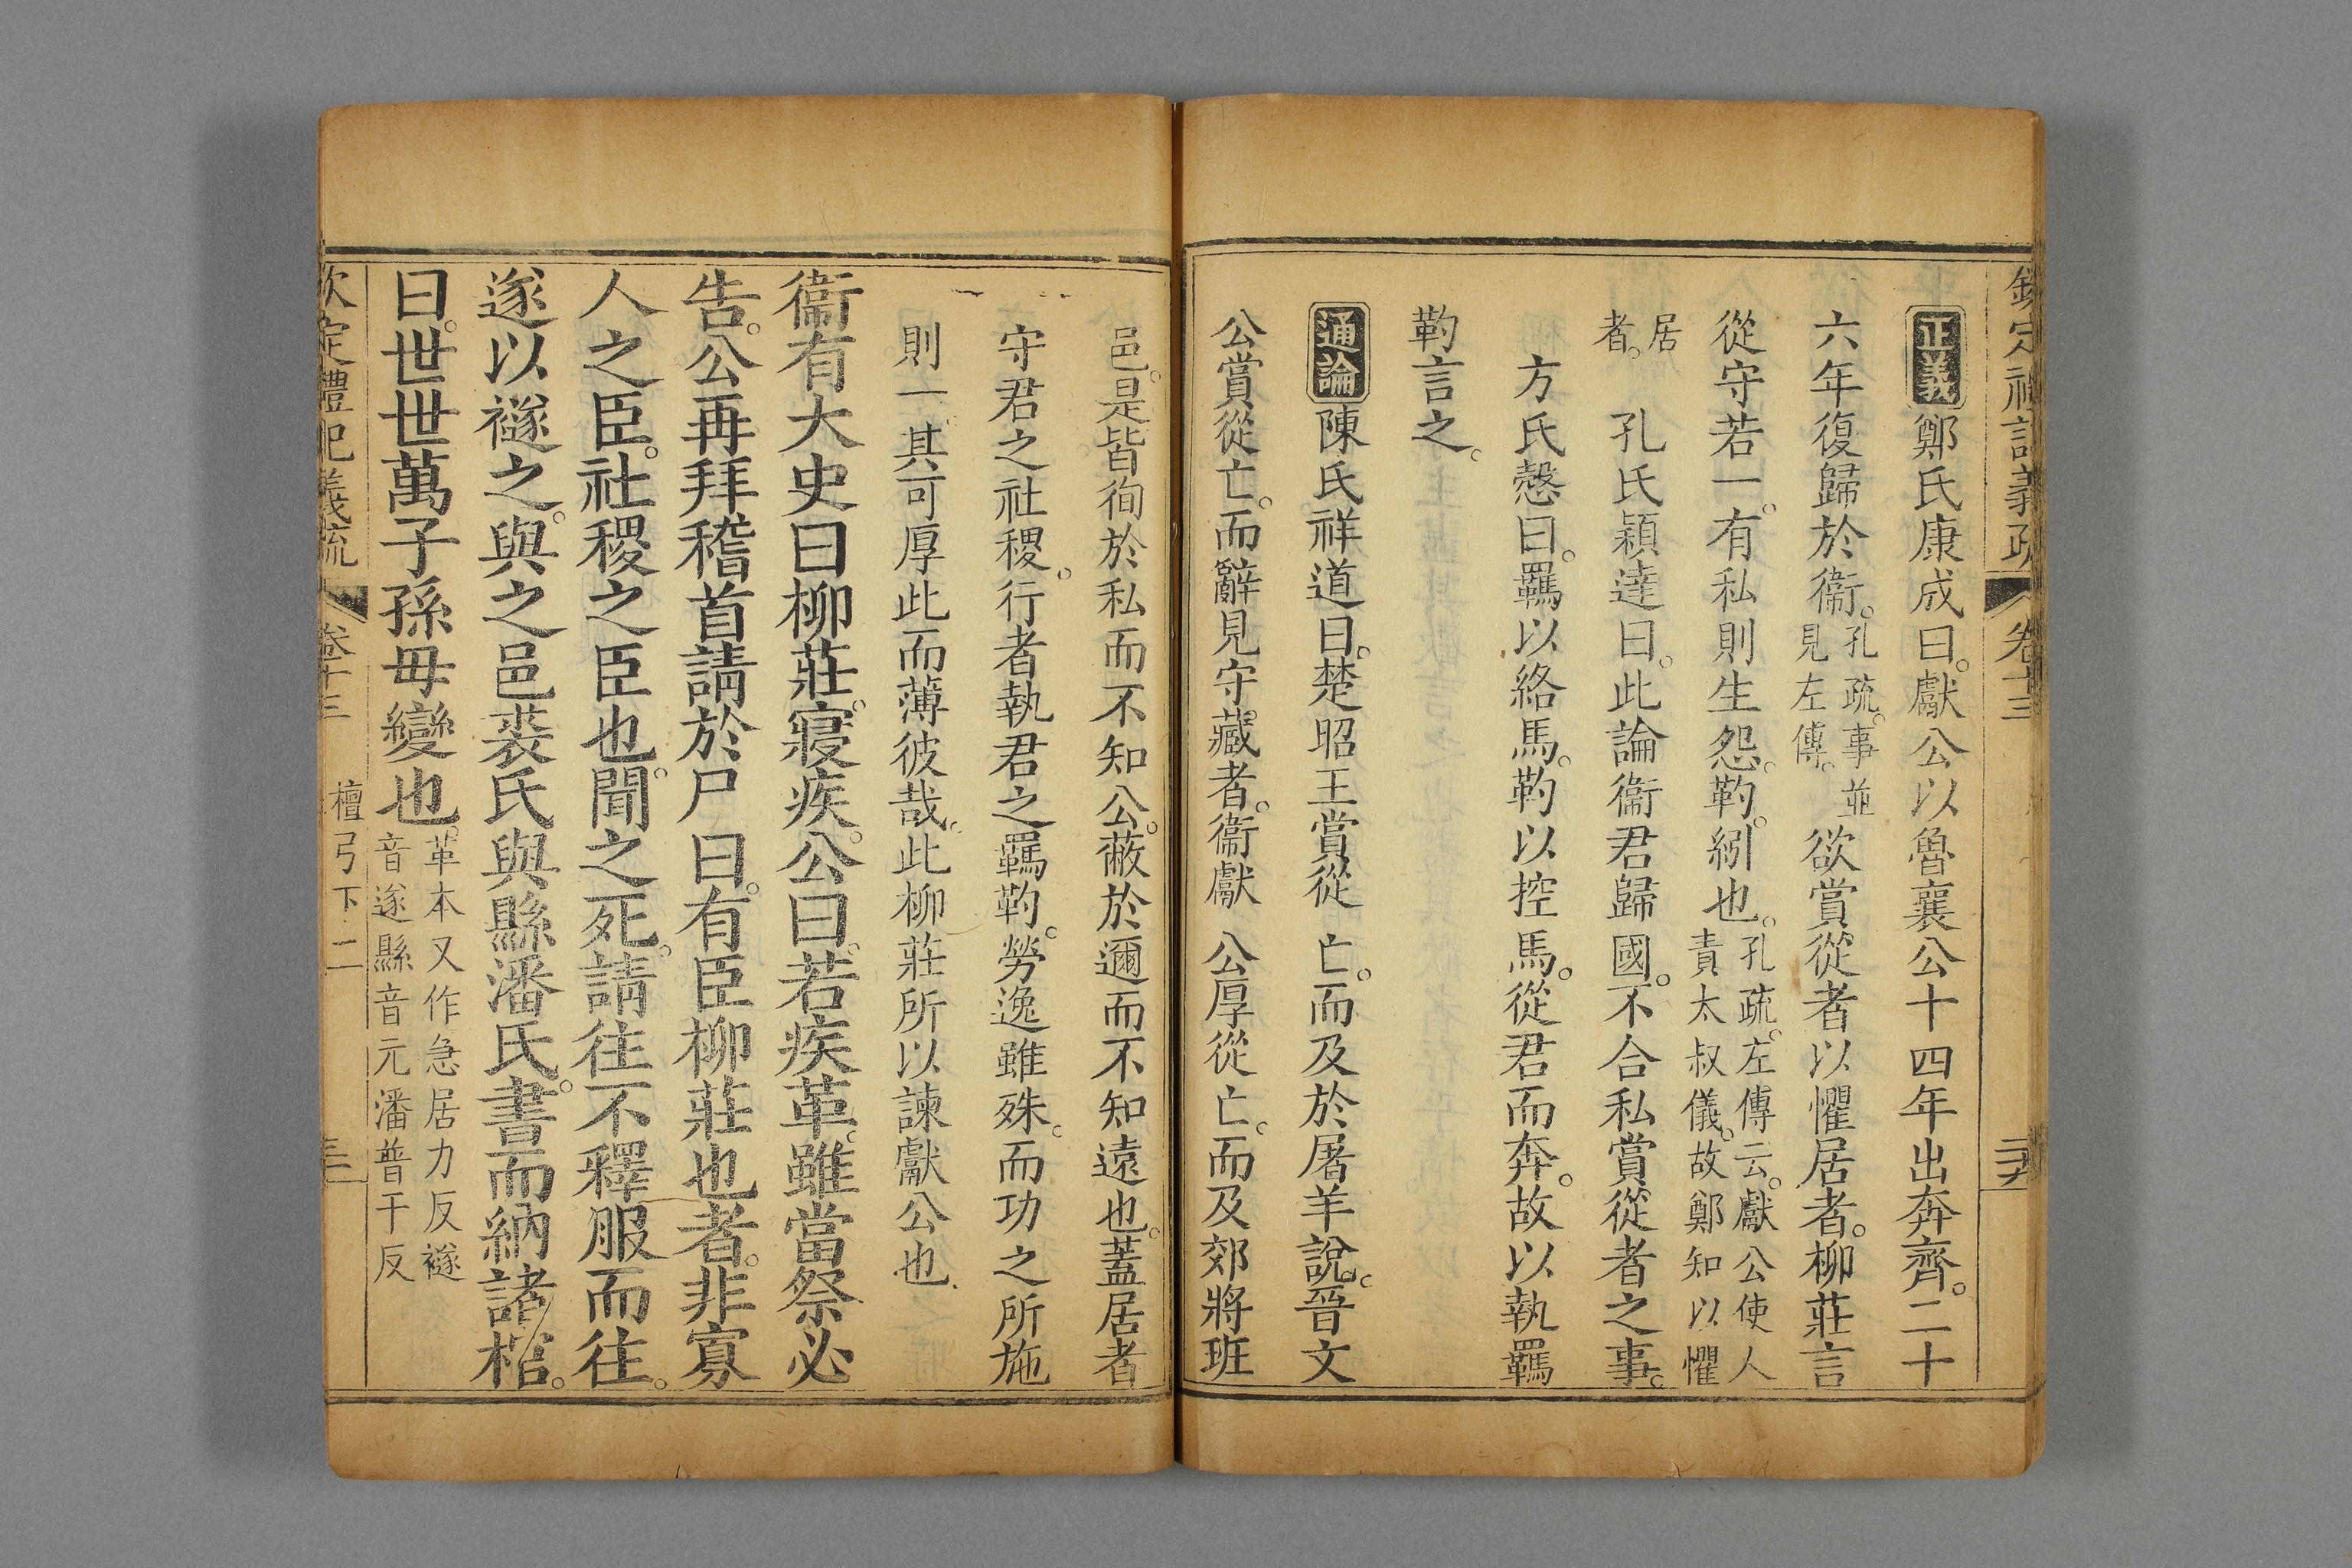 欽定禮記義疏 卷十三
正義鄭氏康成曰。獻公以魯襄公十四年出奔齊。二十
六年復歸於衞。孔疏。事並見左傳。欲賞從者以懼居者。柳莊言
從守若一。有私則生怨。靮。紖也。孔疏。左傳云。獻公使人責太叔儀。故鄭知以懼
居者。 孔氏穎達曰。此論衞君歸國。不合私賞從者之事。
方氏慤曰。羈以絡馬。靮以控馬。從君而奔。故以執羈
靮言之。
通論陳氏祥道曰。楚昭王賞從亡。而及於屠羊說。晉文
公賞從亡。而辭見守藏者。衞獻公厚從亡。而及郊將班
邑。是皆徇於私而不知公。蔽於邇而不知遠也。蓋居者
守君之社稷。行者執君之羈靮。勞逸雖殊。而功之所施
則一。其可厚此而薄彼哉。此柳莊所以諫獻公也。
衞有大史曰柳莊。寢疾。公曰。若疾革。雖當祭必
告。公再拜稽首請於尸曰。有臣柳莊也者。非寡
人之臣。社稷之臣也。聞之死。請往不釋服而往。
遂以襚之。與之邑裘氏與縣潘氏。書而納諸棺。
曰。世世萬子孫毋變也。革本又作急居力反襚音遂縣音元潘普干反
欽定禮記義疏 卷十三 檀弓下二